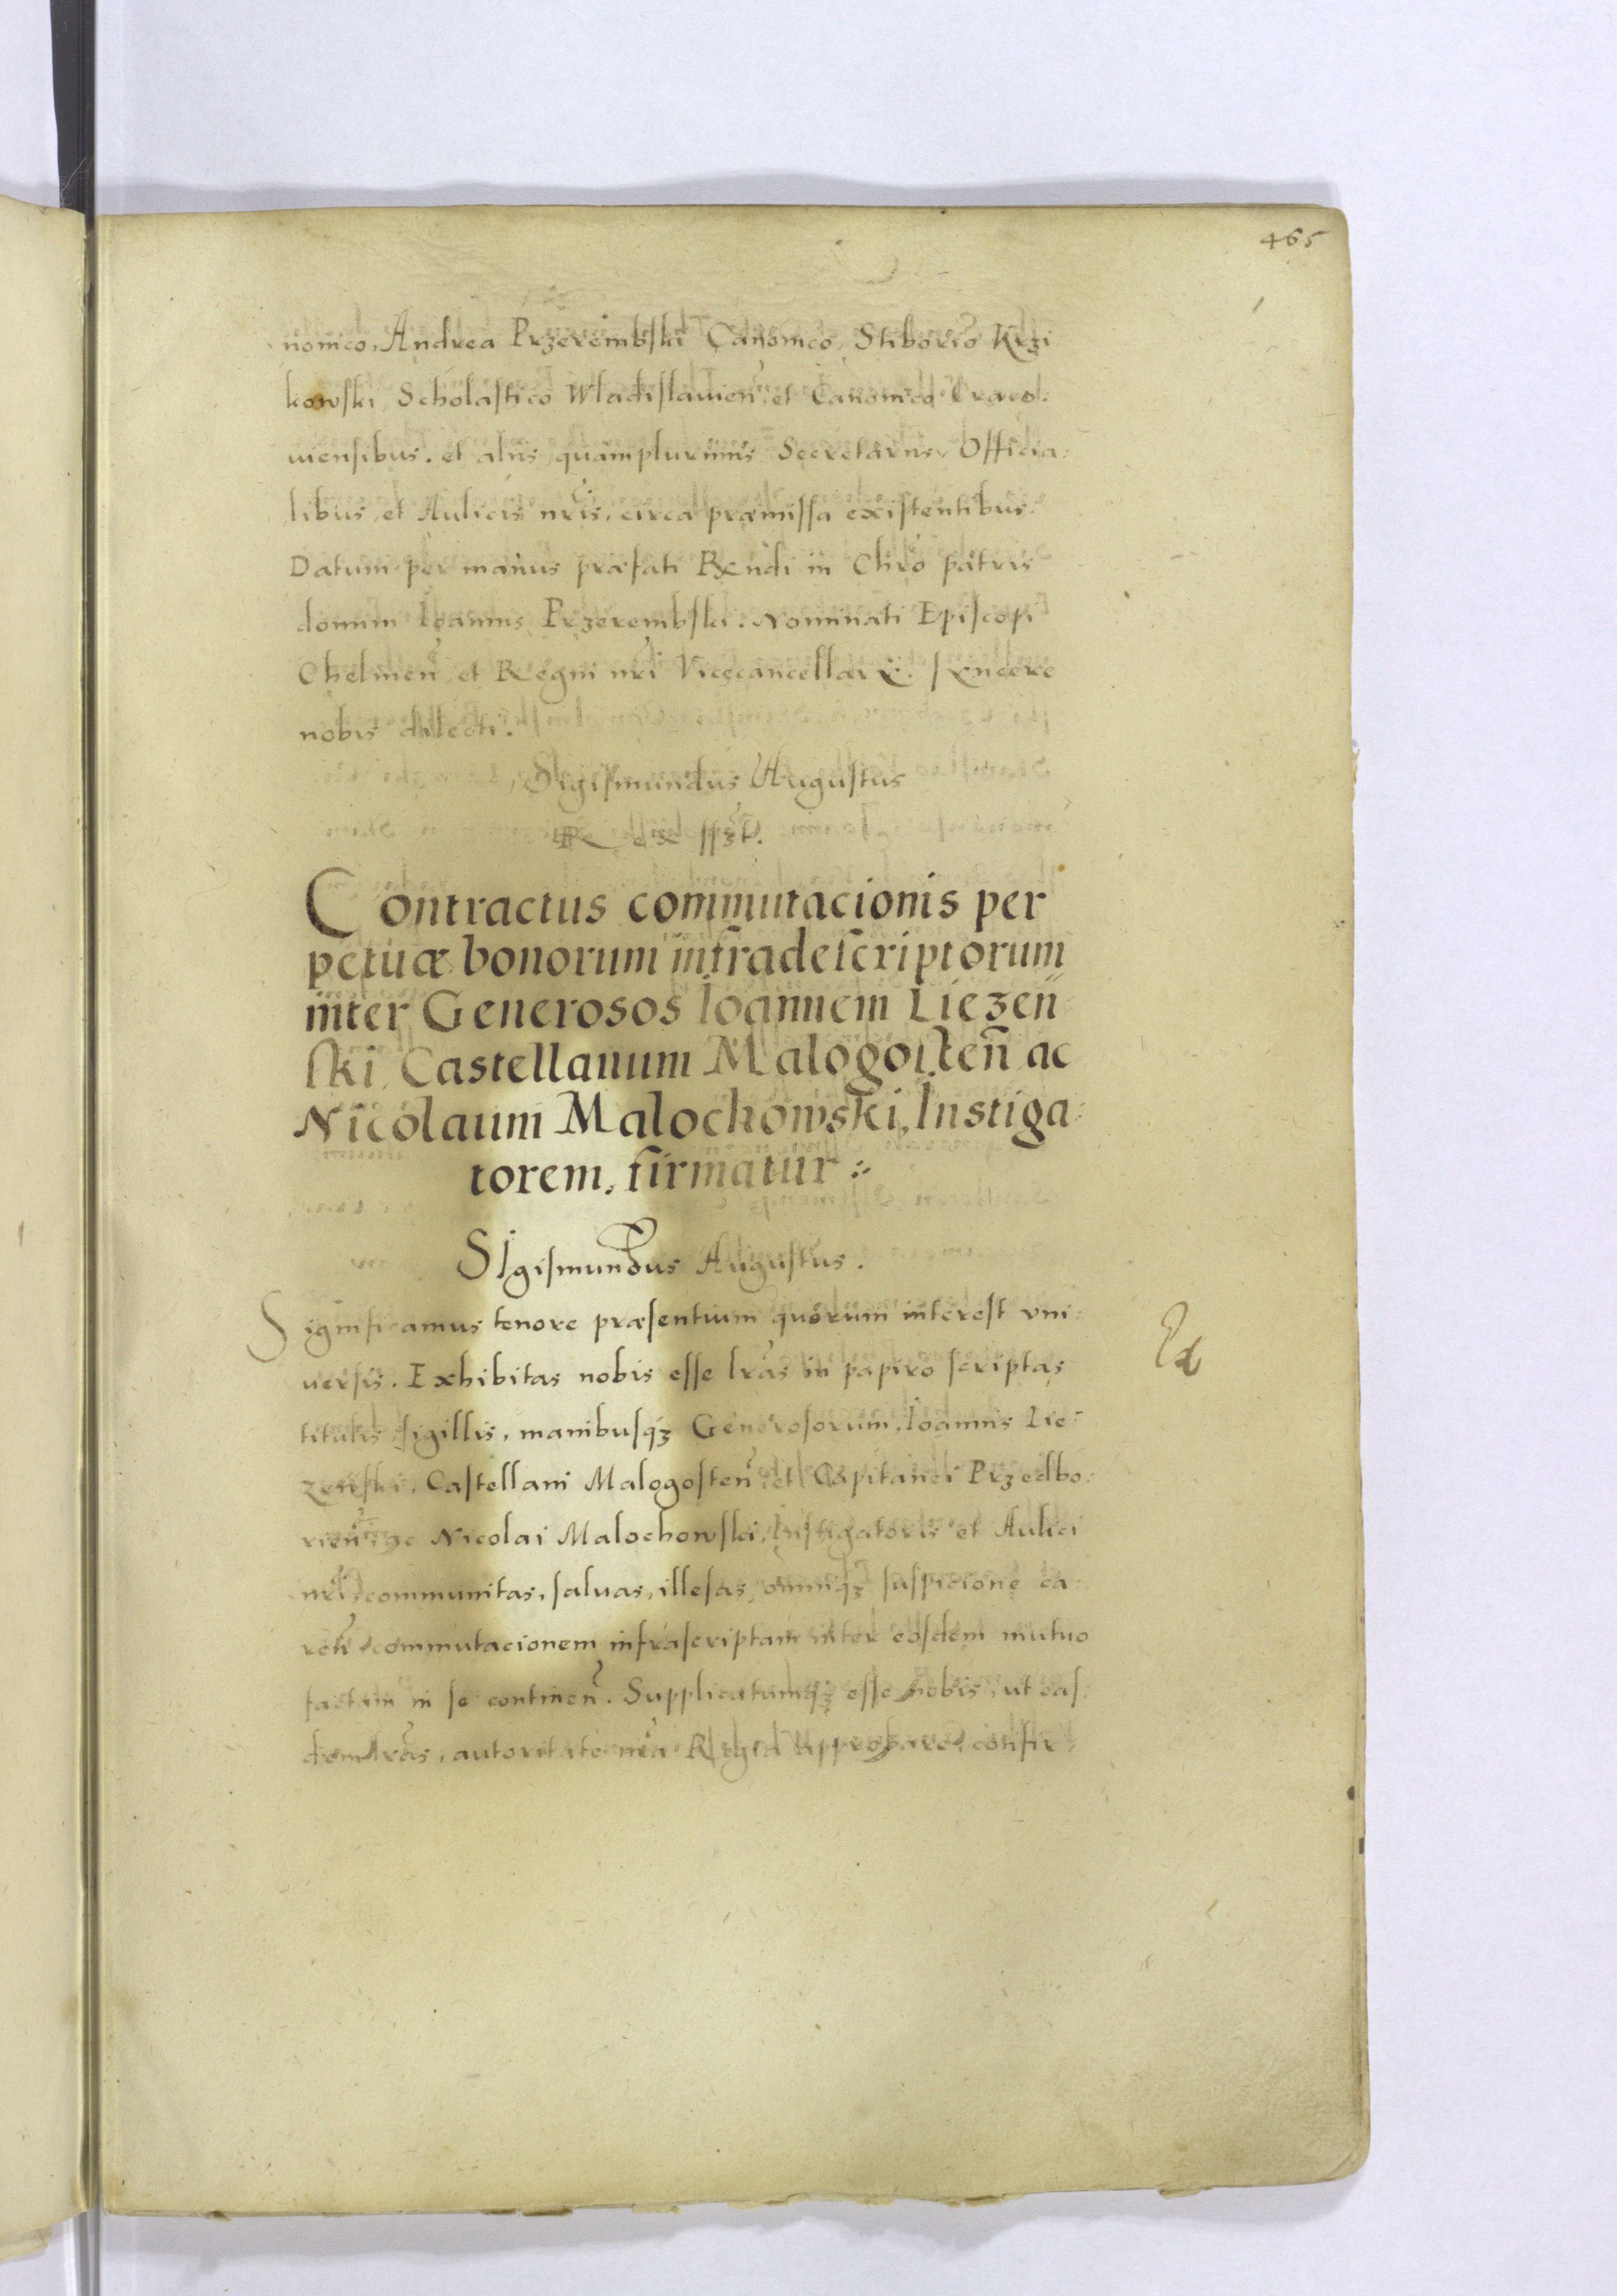 465
nonico, Andrea Przerembski Canonico, Stiborio Krzi
kowski, Scholastico Wladislauien̄, et Canonico Craco:
uiensibus. et alijs quamplurimis Secretarijs, Officia:
libus, et Aulicis nr̄is, circa præmissa existentibus.
Datum per manus præfati Rx̄ndi in Chr̄o patris
domini Ioannis Przerembski. Nominati Episcopi
Chelmen̄ et Regni nr̄i Vicecancellarÿ. syncere
nobis dilecti.
Sigismundus Augustus
Rex sspt.
Contractus commutacionis per
petuæ bonorum infradescriptorum
inter Generosos Ioannem Liezen
ski, Castellanum Malogosten̄ ac
Nicolaum Malochowski, Instiga:
torem, firmatur :~
SIgismundus Augustus.
Significamus tenore præsentium quorum interest vni:
uersis. Exhibitas nobis esse lr̄as in papiro scriptas
titulis sigillis, manibusq3 Generosorum, Ioannis Lie:
zenski, Castellani Malogosten̄ et Capitanei Przedbo:
rien̄ ac Nicolai Malochowski, Instigatoris et Aulici
nr̄i, communitas, saluas, illesas, omniq3 suspicione ca:
ren̄ commutacionem infrascriptam inter eosdem mutuo
factam in se continen̄. Supplicatumq3 esse nobis, ut eas:
dem lr̄as, autoritate nr̄a Regia approbare, confir: